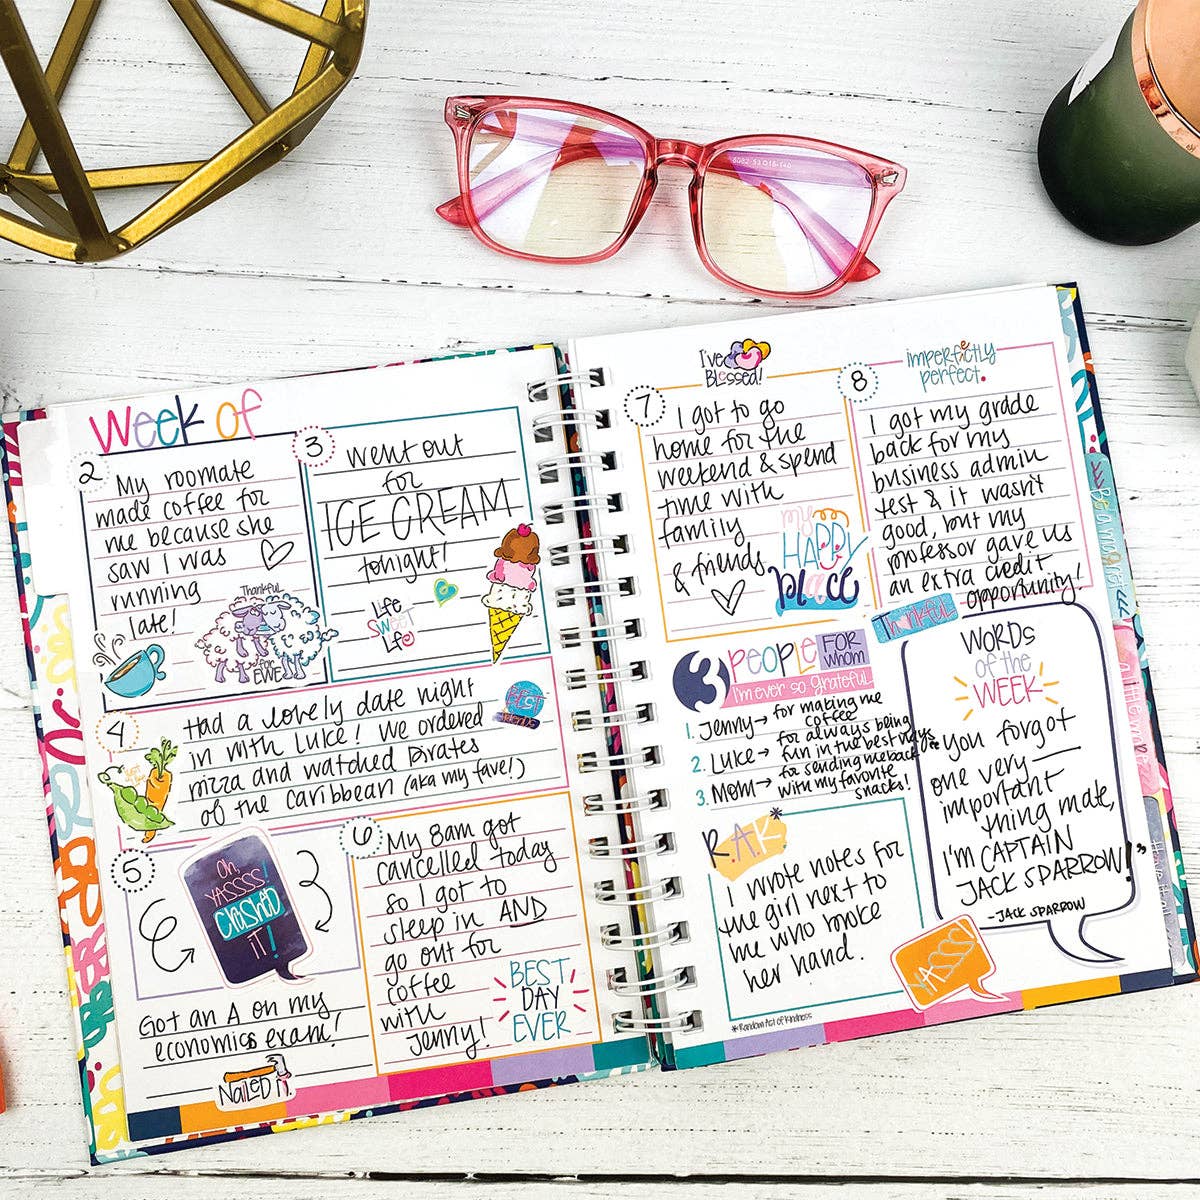 Week of
2
My roomate
made coffee for
me because she
saw I was
running
late!
Thankful
for
EWE
3
Went out
for
ICE CREAM
tonight!
Life
SWEET
Life!
4
Had a lovely date night
in with Luke! We ordered
pizza and watched Pirates
of the Caribbean (aka my fave!)
BEST
5
Oh,
YASSSS!
CRUSHED
IT!
Got an A on my
economics exam!
NAILED IT.
6
My 8am got
cancelled today
so I got to
sleep in AND
go out for
coffee
with
Jenny!
BEST
DAY
EVER
I'VE
BLESSED!
7
I got to go
home for the
weekend & spend
time with
family
& friends.
my
HAPPY
place
8
imperfectly
perfect.
I got my grade
back for my
business admin
test & it wasn't
good, but my
professor gave us
an extra credit
opportunity!
Thankful
3 PEOPLE FOR
WHOM
I'M EVER SO GRATEFUL
1. Jenny → for making me
coffee
2. Luke → for always being
fun in the best ways
3. Mom → for sending me back
with my favorite
snacks!
R.A.K*
I wrote notes for
the girl next to
me who broke
her hand.
*Random Act of Kindness
WORDS
of the
WEEK
"you forgot
one very
important
thing mate,
I'M CAPTAIN
JACK SPARROW!"
- JACK SPARROW
YASSS!
6062 53 18-140